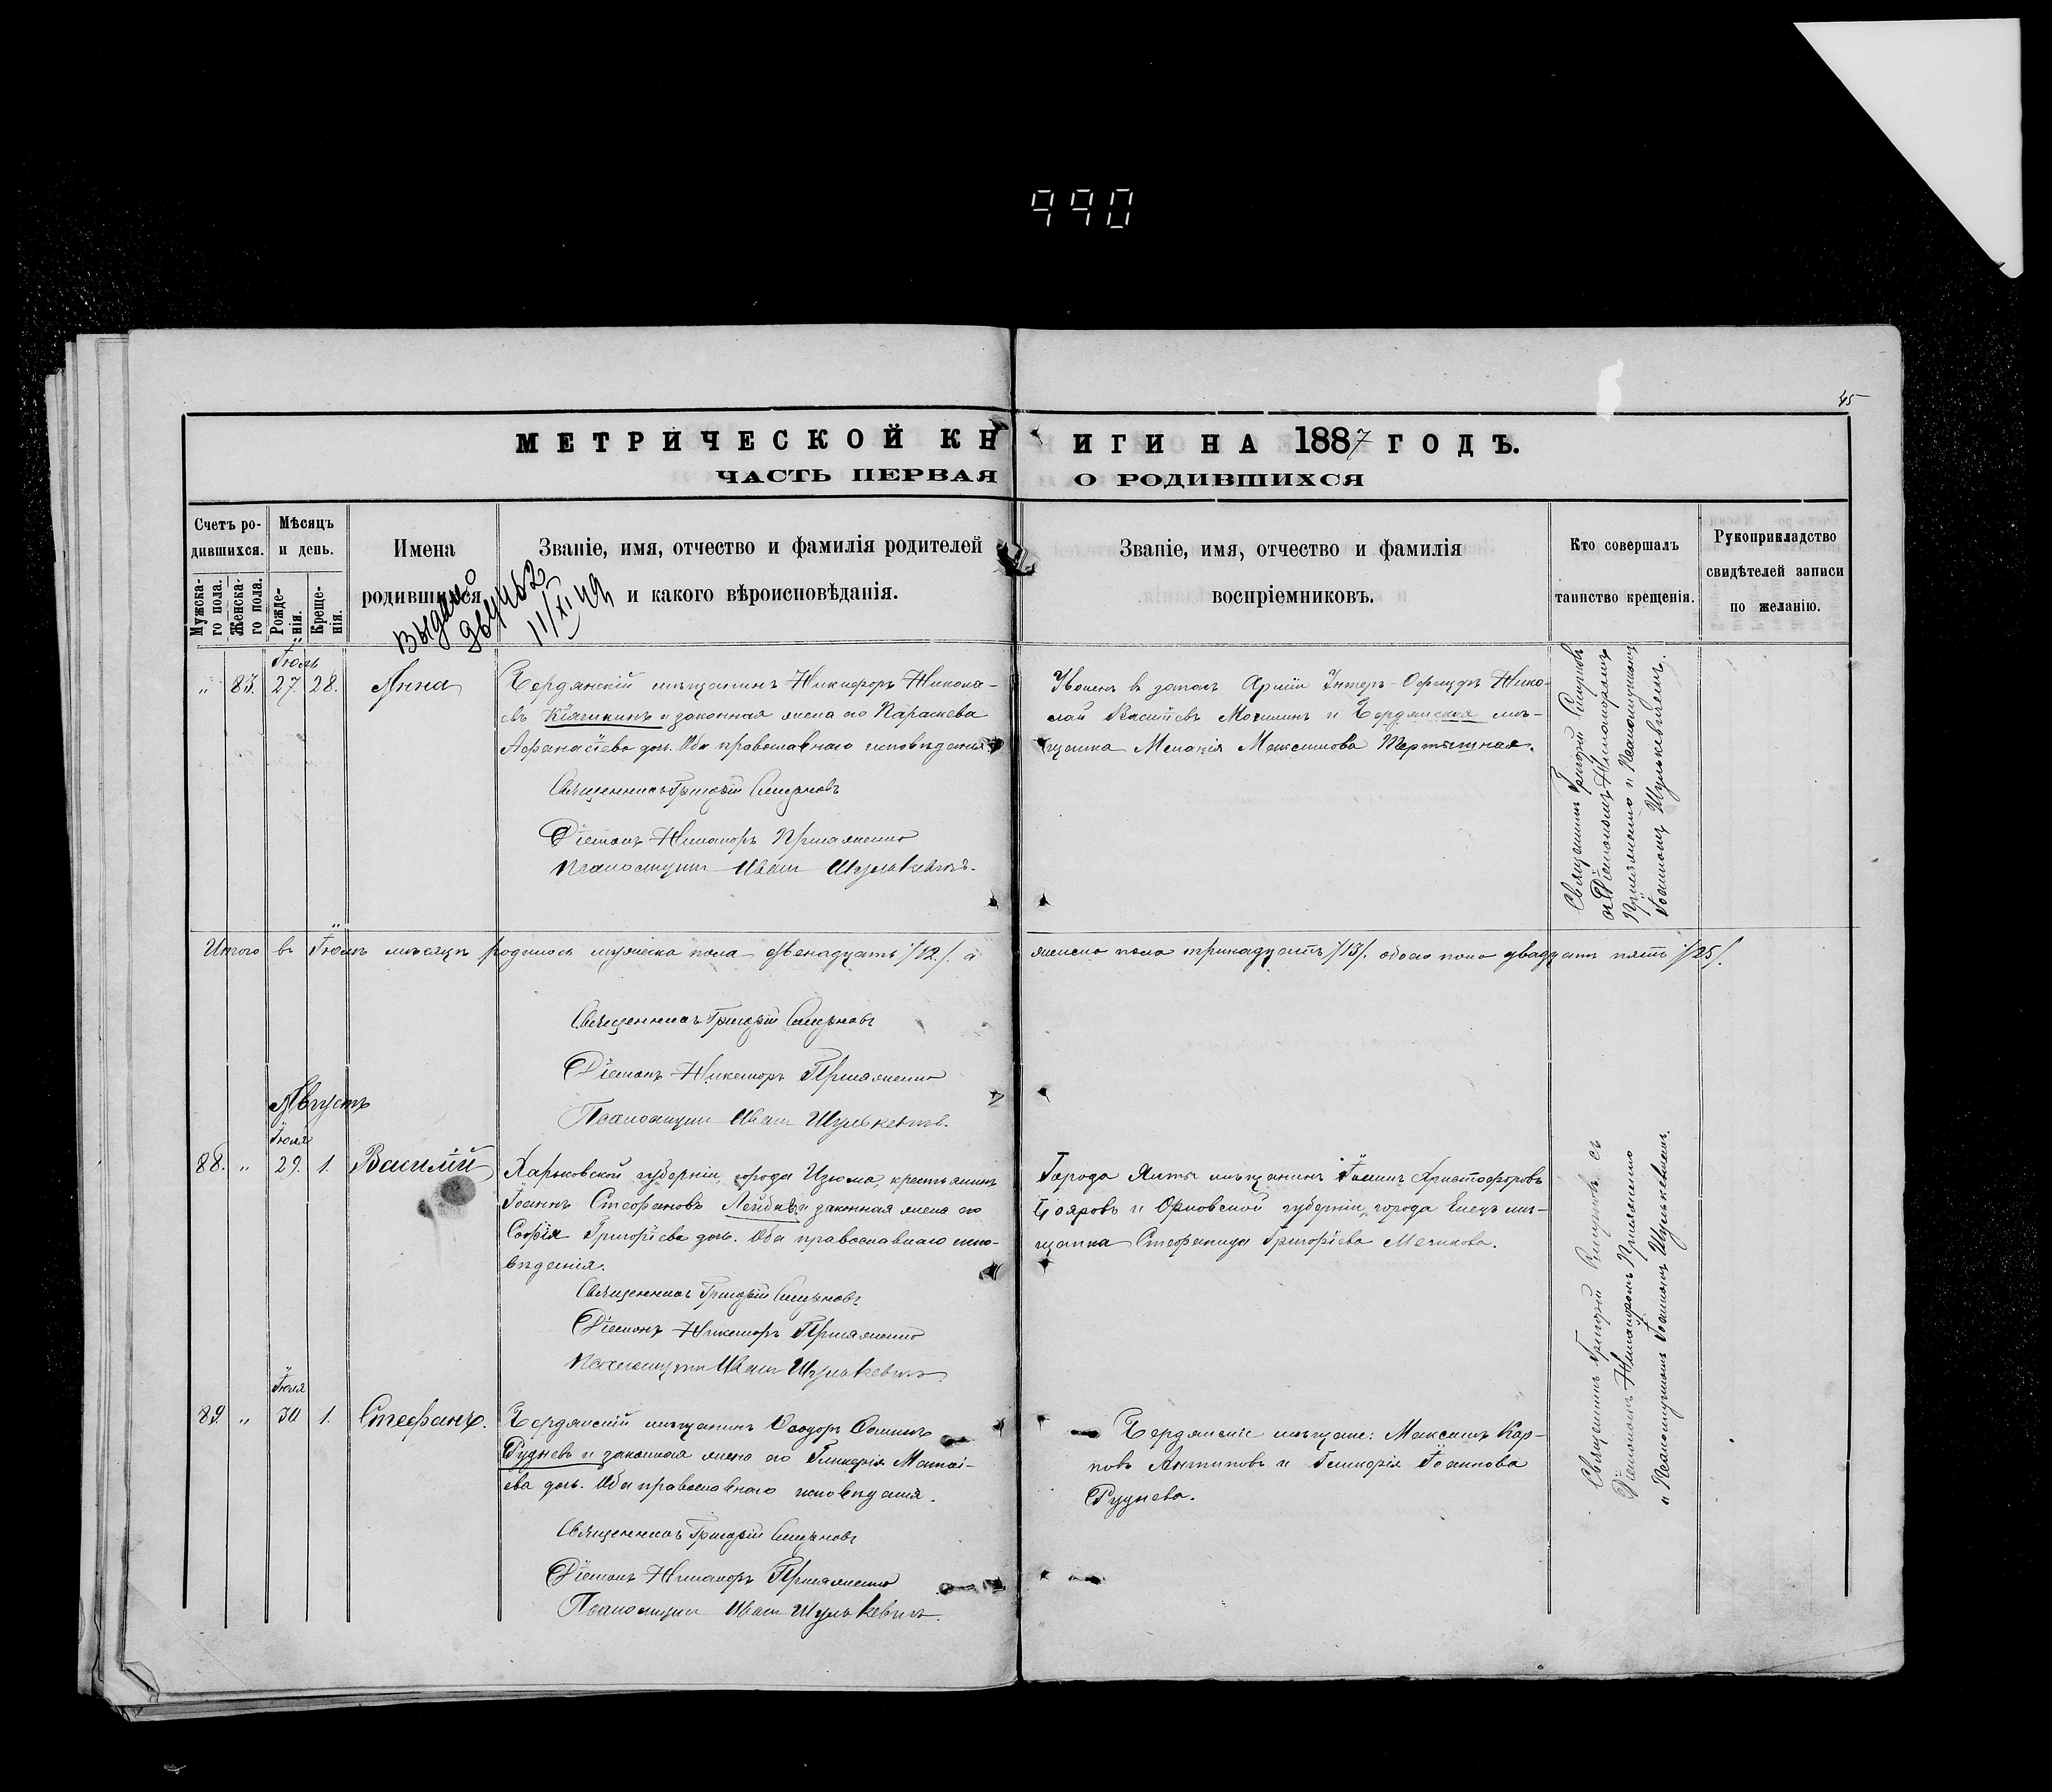 990
45
МЕТРИЧЕСКОЙ КНИГИ НА 1887 ГОДЪ.
ЧАСТЬ ПЕРВАЯ О РОДИВШИХСЯ
Счетъ ро-
дившихся.
Мужска-
го пола.
Женска-
го пола.
Мѣсяцъ
и день.
Рожде-
нія.
Креще-
нія.
Имена
родившихся.
Званіе, имя, отчество и фамилія родителей
и какого вѣроисповѣданія.
Званіе, имя, отчество и фамилія
воспріемниковъ.
Кто совершалъ
таинство крещенія.
Рукоприкладство
свидѣтелей записи
по желанію.
выдано
11/XI 49
Іюль
„ 83. 27. 28. Анна
Бердянскій мѣщанинъ Никифоръ Никола-
евъ Кіяшкинъ и законная жена его Параскева
Афанасіева дочь. Оба православнаго исповѣданія
Священникъ Григорій Смирновъ
Діаконъ Никаноръ Прихоженко
Псаломщикъ Иванъ Шулькевичъ.
Уволен в запасъ Арміи Унтеръ-Офицеръ Нико-
лай Васильевъ и Бердянская мѣ-
щанка Меланія Максимова Тертышная.
Священникъ Григорій Смирновъ
съ Діакономъ Никаноромъ
и Псаломщикомъ
Іоанномъ Шулькевичемъ.
Итого въ Іюлѣ мѣсяцѣ родилось мужеска пола двенадцать /12/. а
женска пола тринадцать /13/. обоего пола двадцать пять /25/.
Священникъ Григорій Смирновъ
Діаконъ Никаноръ
Псаломщикъ Иванъ Шулькевичъ.
Августъ
Іюля
88. „ 29. 1. Василій
Харьковской губерніи, города Изюма, крестьянинъ
Іоаннъ Стефановъ и законная жена его
Софія Григоріева дочь. Оба православнаго испо-
вѣданія.
Священникъ Григорій Смирновъ
Діаконъ Никаноръ
Псаломщикъ Иванъ Шулькевичъ.
Города Ялты мѣщанинъ Іоаннъ Христофоровъ
Бояровъ и Орловской губерніи, города Елецъ мѣ-
щанка Стефанида Григоріева
Священникъ Григорій Смирновъ съ
Діакономъ Никаноромъ
и Псаломщикомъ Іоанномъ Шулькевичемъ.
Іюля
89. „ 30 1. Стефанъ.
Бердянскій мѣщанинъ Ѳеодоръ
Рудневъ и законная жена его Гликерія Матѳі-
ева дочь. Оба православнаго исповѣданія.
Священникъ Григорій Смирновъ
Діаконъ Никаноръ
Псаломщикъ Иванъ Шулькевичъ.
Бердянскіе мѣщане: Максимъ Кар-
повъ Антиповъ и Гликерія Іоаннова
Руднева.